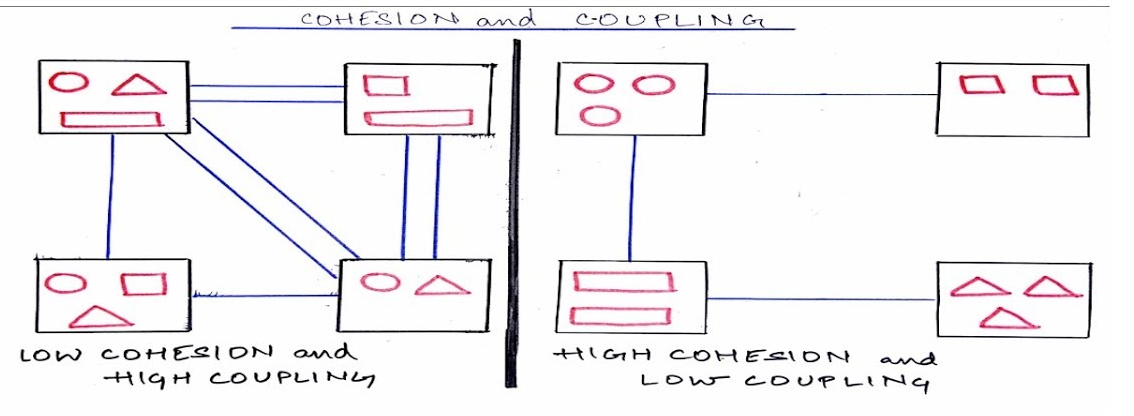 COHESION and COUPLING
LOW COHESION and
HIGH COUPLING
HIGH COHESION and
LOW COUPLING